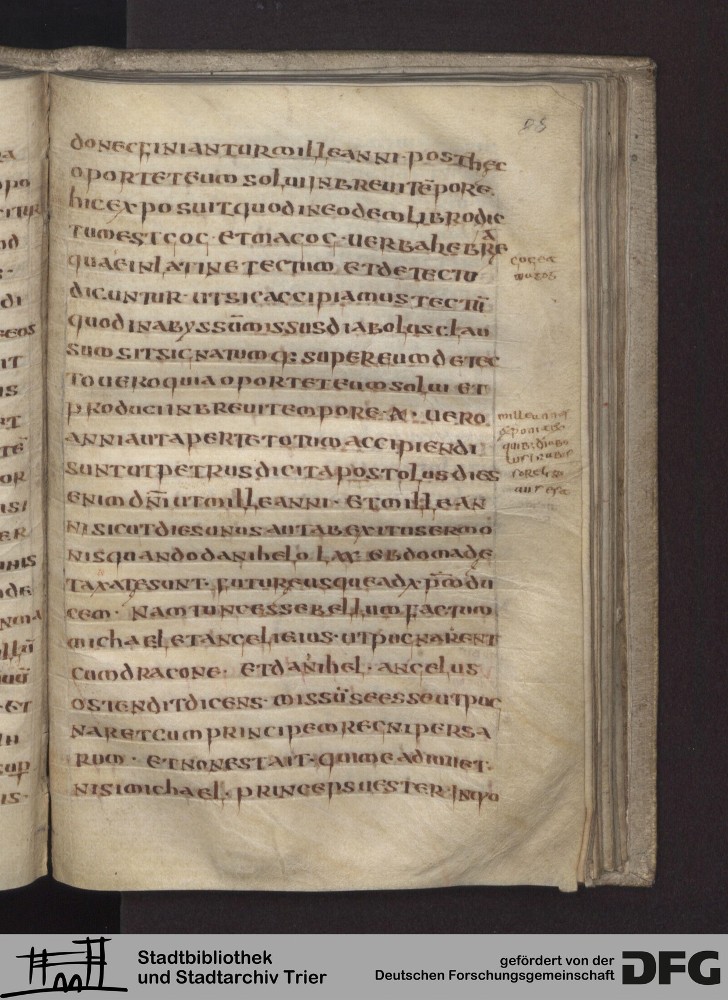 donecfinianturmilleanni·posthec
oporteteum soluiinbreuitēpore.
hic exposuitquodineodemlibrodic
tumestgog·etmagog·uerbahebre
quaeinlatine tectum etdetectu
dicuntur·utsicaccipiamustectū
quodinabyssūmissusdiaboluscLau
sumsitsignatumq: supereumdetec
touero quia oporteteumsolui et
produciinbreuitempore·ā·uero
anniautapertetotum accipiendi
suntutpetrusdicitapostolusdies
enimdn̄iutmilleanni·etmillean
nisicutdiesunus autabexitusermo
nisquandodanihelo lxx ebdomade
taxatesunt·futureusqueadxp̄mdu
cem· namtuncessebellumfactum
michaeletangelieius·utpugnarent
cumdracone· etdanihel·angelus
ostenditdicens·missūseesseutpug
naretcumprincipemregnipersa
rum· etnonestait·quimeadiuuet·
nisimichael·princepsuester·inquo
milleanni
Stadtbibliothek
und Stadtarchiv Trier
gefördert von der
Deutschen Forschungsgemeinschaft
DFG